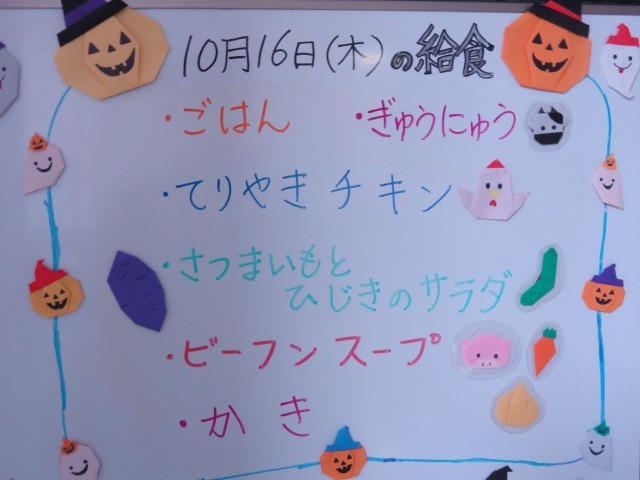 10月16日(木)の給食
・ごはん ・ぎゅうにゅう
・てりやきチキン
・さつまいもと
ひじきのサラダ
・ビーフンスープ
・かき